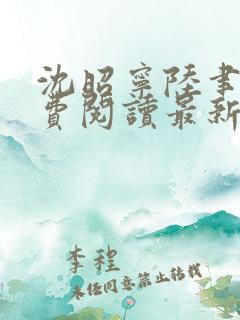 沈昭寧陸聿
費閱讀最新
李程
未经同意禁止转载